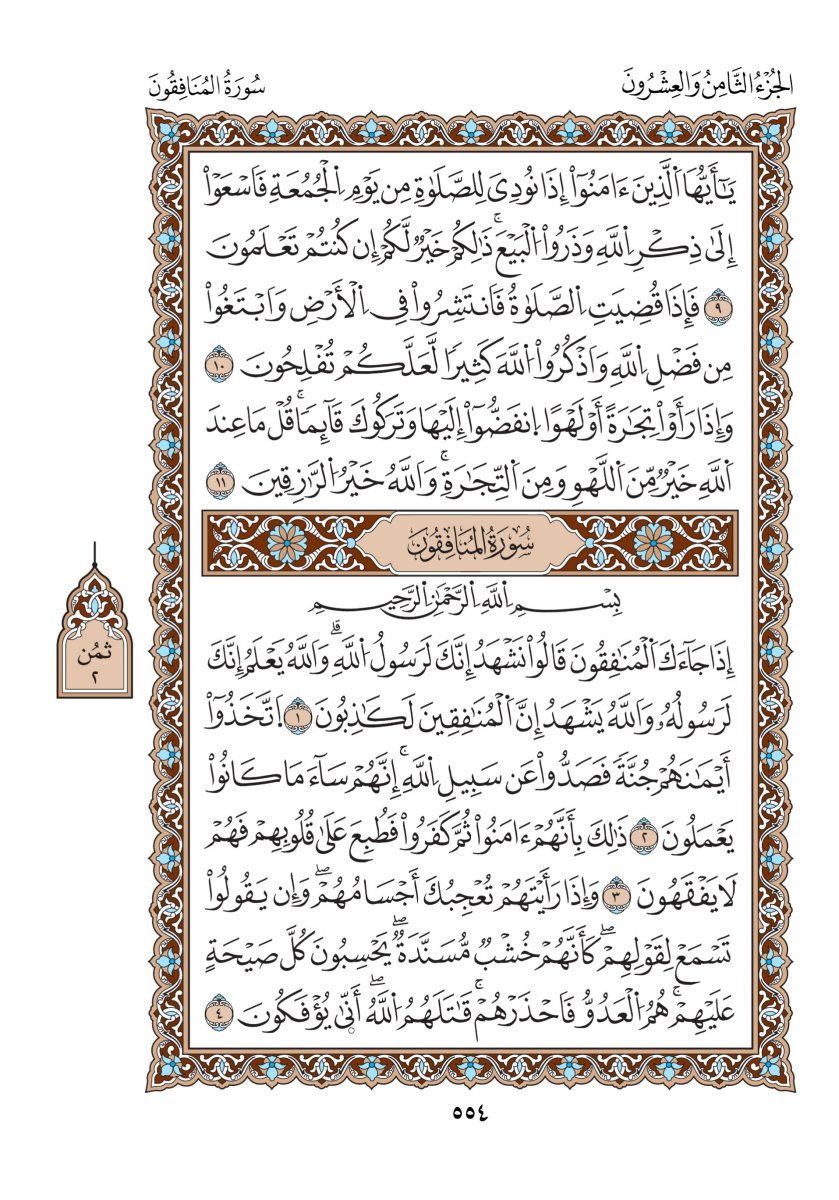 الجُزْءُ الثَّامِنُ وَالعِشْرُونَ
سُورَةُ المُنَافِقُونَ
يَـٰٓأَيُّهَا اَ۬لَّذِينَ ءَامَنُوٓاْ إِذَا نُودِىَ لِلصَّلَوٰةِ مِن يَوْمِ اِ۬لْجُمُعَةِ فَاسْعَوْاْ
إِلَىٰ ذِكْرِ اِ۬للَّهِ وَذَرُواْ اُ۬لْبَيْعَۚ ذَٰلِكُمْ خَيْرٌ لَّكُمْ إِن كُنتُمْ تَعْلَمُونَ
٩ فَإِذَا قُضِيَتِ اِ۬لصَّلَوٰةُ فَانتَشِرُواْ فِى اِ۬لْأَرْضِ وَابْتَغُواْ
مِن فَضْلِ اِ۬للَّهِ وَاذْكُرُواْ اُ۬للَّهَ كَثِيرًا لَّعَلَّكُمْ تُفْلِحُونَ ١٠
وَإِذَا رَأَوْاْ تِجَٰرَةً أَوْ لَهْوًا اِ۪نفَضُّوٓاْ إِلَيْهَا وَتَرَكُوكَ قَآئِمًاۚ قُلْ مَا عِندَ
اَ۬للَّهِ خَيْرٌ مِّنَ اَ۬للَّهْوِ وَمِنَ اَ۬لتِّجَٰرَةِۚ وَاللَّهُ خَيْرُ اُ۬لرَّٰزِقِينَ ١١
سُورَةُ المُنَافِقُونَ
بِسْمِ اِ۬للَّهِ اِ۬لرَّحْمَٰنِ اِ۬لرَّحِيمِ
إِذَا جَآءَكَ اَ۬لْمُنَٰفِقُونَ قَالُواْ نَشْهَدُ إِنَّكَ لَرَسُولُ اُ۬للَّهِۗ وَاللَّهُ يَعْلَمُ إِنَّكَ
لَرَسُولُهُۥ وَاللَّهُ يَشْهَدُ إِنَّ اَ۬لْمُنَٰفِقِينَ لَكَٰذِبُونَ ١ اَ۪تَّخَذُوٓاْ
أَيْمَٰنَهُمْ جُنَّةً فَصَدُّواْ عَن سَبِيلِ اِ۬للَّهِۚ إِنَّهُمْ سَآءَ مَا كَانُواْ
يَعْمَلُونَ ٢ ذَٰلِكَ بِأَنَّهُمْ ءَامَنُواْ ثُمَّ كَفَرُواْ فَطُبِعَ عَلَىٰ قُلُوبِهِمْ فَهُمْ
لَا يَفْقَهُونَ ٣ وَإِذَا رَأَيْتَهُمْ تُعْجِبُكَ أَجْسَامُهُمْۖ وَإِن يَقُولُواْ
تَسْمَعْ لِقَوْلِهِمْۖ كَأَنَّهُمْ خُشْبٌ مُّسَنَّدَةٌۖ يَحْسِبُونَ كُلَّ صَيْحَةٍ
عَلَيْهِمْۚ هُمُ اُ۬لْعَدُوُّ فَاحْذَرْهُمْۚ قَٰتَلَهُمُ اُ۬للَّهُۖ أَنّ۪ىٰ يُؤْفَكُونَ ٤
ثمُن
٢
٥٥٤